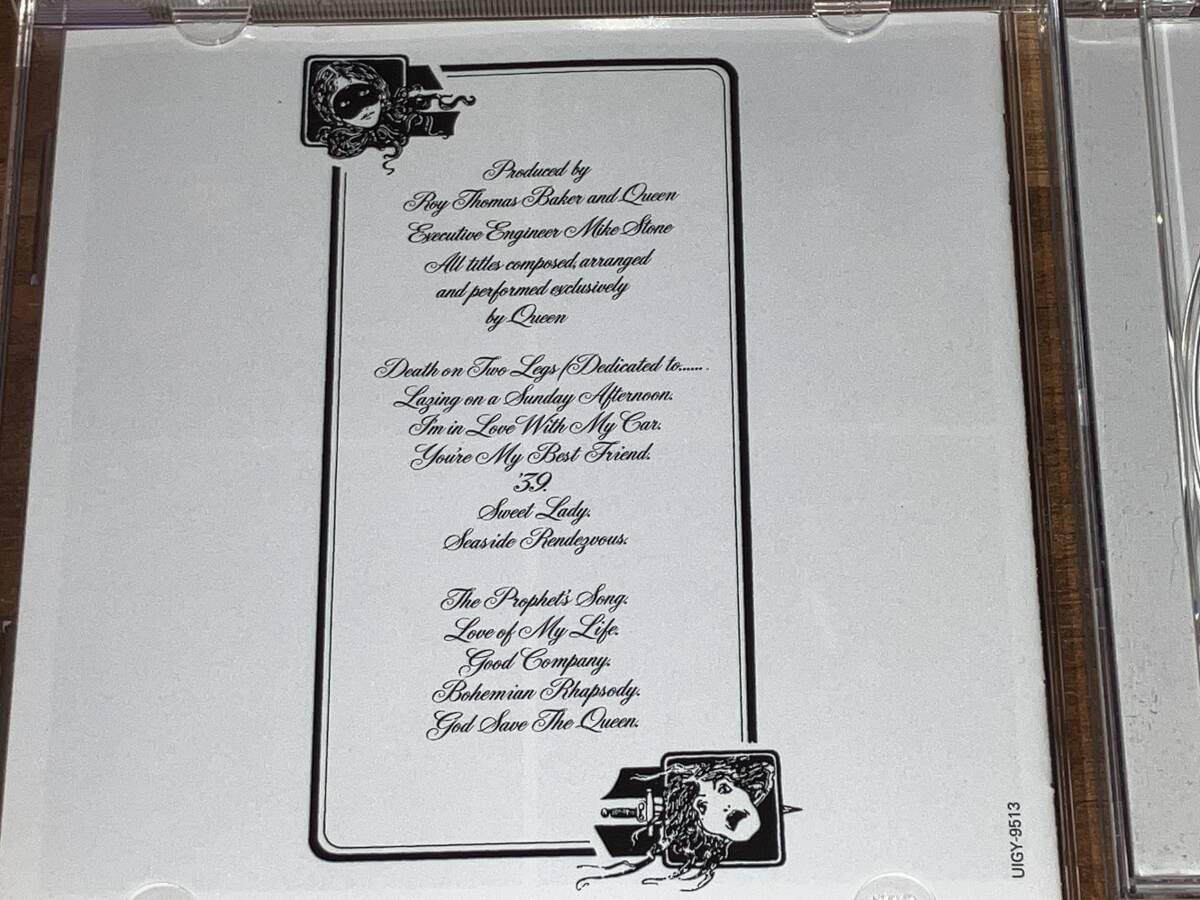 Produced by
Roy Thomas Baker and Queen
Executive Engineer Mike Stone
All titles composed, arranged
and performed exclusively
by Queen
Death on Two Legs (Dedicated to.......
Lazing on a Sunday Afternoon.
I'm in Love With My Car.
You're My Best Friend.
'39.
Sweet Lady.
Seaside Rendezvous.
The Prophet's Song.
Love of My Life.
Good Company.
Bohemian Rhapsody.
God Save The Queen.
UIGY-9513